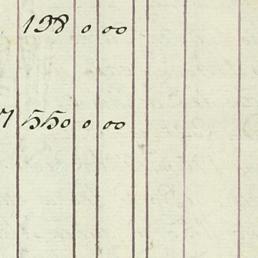 138 0 00
550 0 00